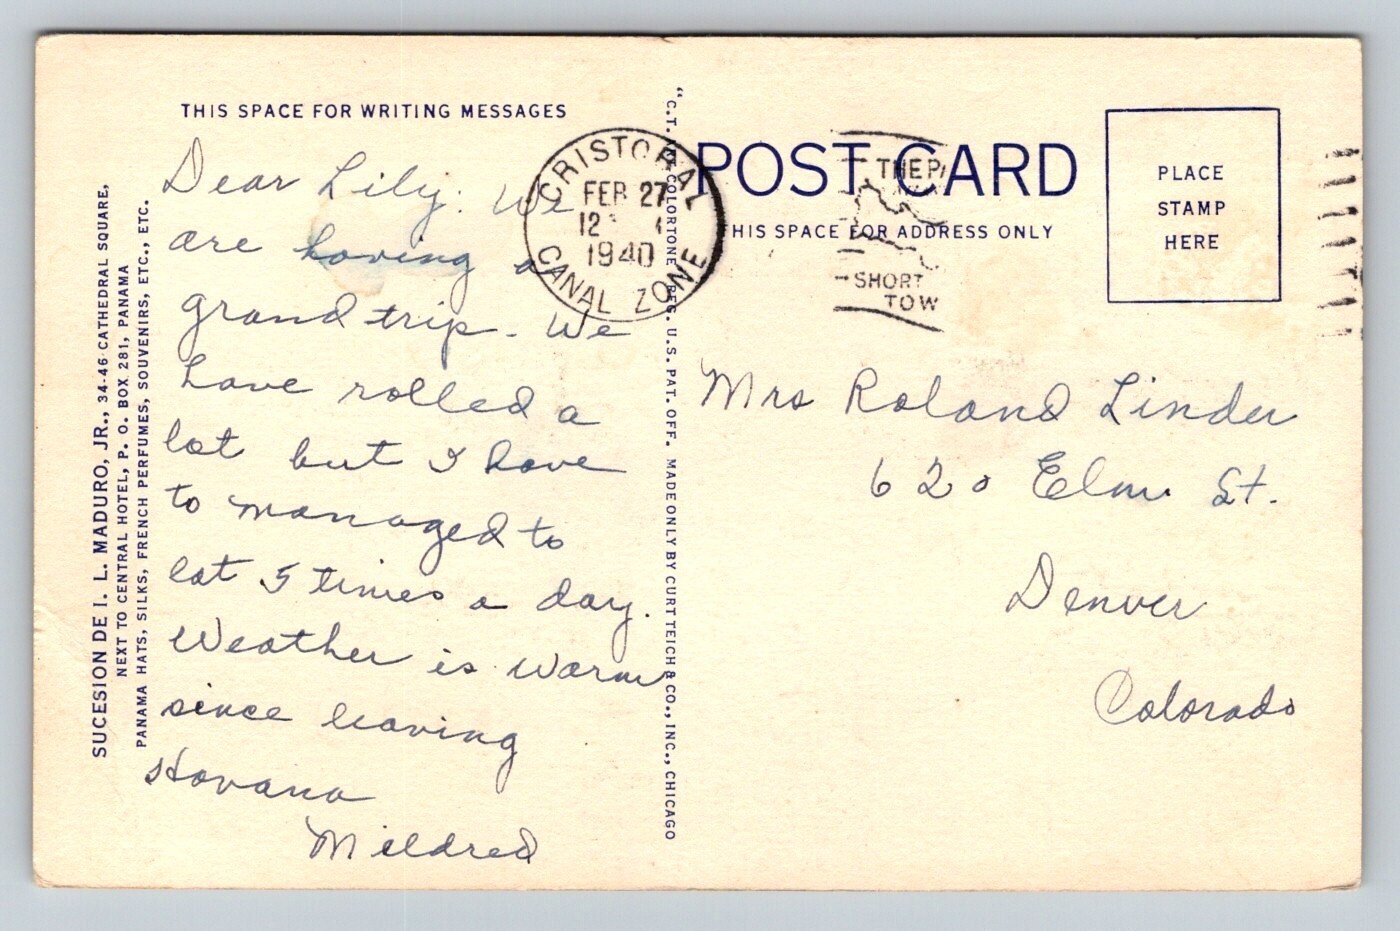 THIS SPACE FOR WRITING MESSAGES
Dear Lily: We
are having a
grand trip. We
have rolled a
lot but I have
to managed to
eat 5 times a day.
Weather is warm
since leaving
Havana
Mildred
SUCESION DE I. L. MADURO, JR., 34-46 CATHEDRAL SQUARE,
NEXT TO CENTRAL HOTEL, P. O. BOX 281, PANAMA
PANAMA HATS, SILKS, FRENCH PERFUMES, SOUVENIRS, ETC., ETC.
CRISTOBAL
FEB 27
12
1940
CANAL ZONE
"C.T. COLORTONE" REG. U.S. PAT. OFF. MADE ONLY BY CURT TEICH & CO., INC., CHICAGO
POST CARD
THIS SPACE FOR ADDRESS ONLY
THE PA
SHORT
TOW
PLACE
STAMP
HERE
Mrs Roland Linder
620 Elm St.
Denver
Colorado